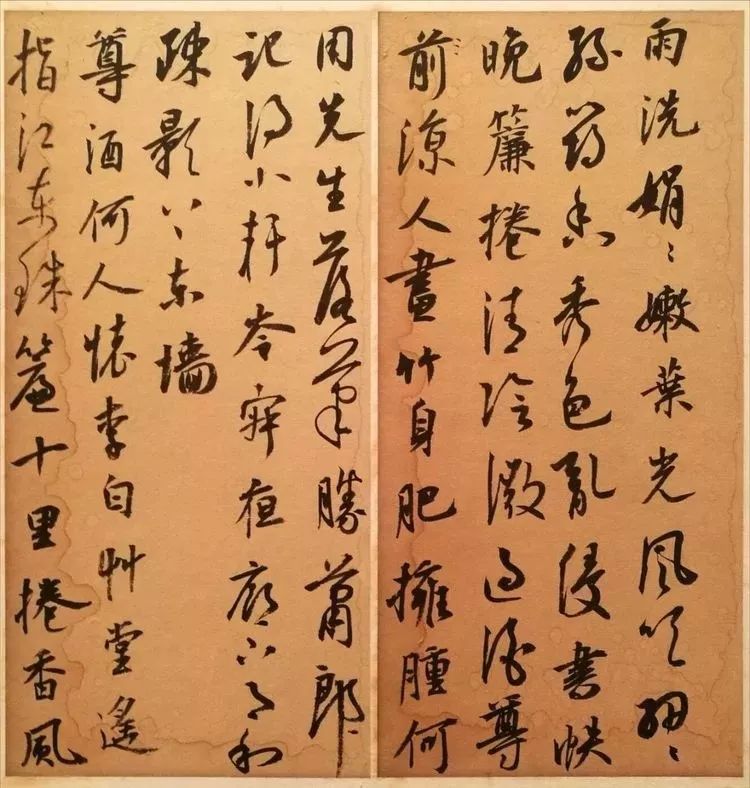 雨洗娟〻嫩葉光風吹細〻
綠筠香秀色亂侵書帙
晚簾捲清陰微過酒尊
前涼人畫竹身肥擁腫何
用先生落筆勝蕭郎
記得小軒岑寂夜廊下月和
疎影上東墻
尊酒何人懷李白艸堂遙
指江東珠簾十里捲香風